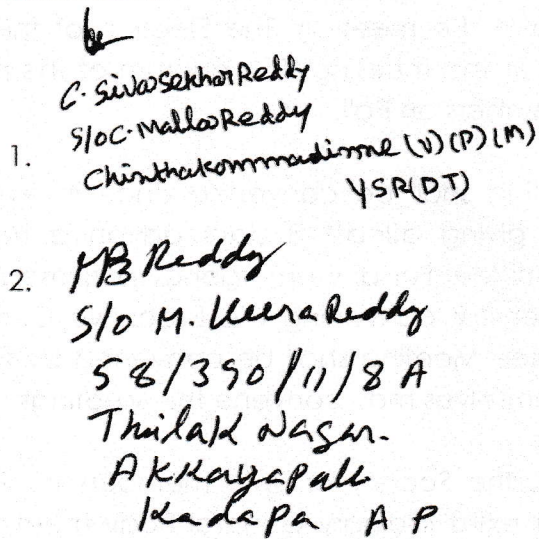 C. Siva Sekhar Reddy
S/o C. Malla Reddy
1.
Chinthakommadinne (V) (P) (M)
YSR (DT)
2. MB Reddy
S/o M. Veera Reddy
58/390/11/8 A
Thilak Nagar.
Akkayapalli
Kadapa A P